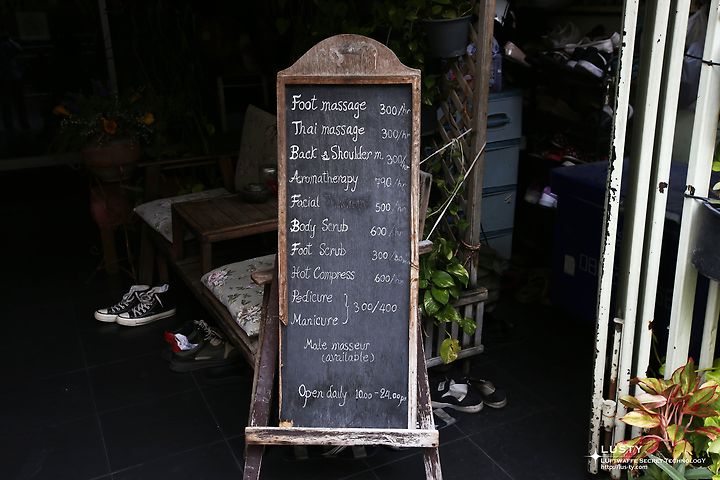 Foot massage 300/hr
Thai massage 300/hr
Back & Shoulder m. 300/hr
Aromatherapy 790/hr
Facial 500/hr
Body Scrub 600/hr
Foot Scrub 300/30
Hot Compress 600/hr
Pedicure
Manicure } 300/400
Male masseur
(available)
Open daily 10.00-24.00
LUSTY
Luftwaffe Secret Technology
http://lus-ty.com